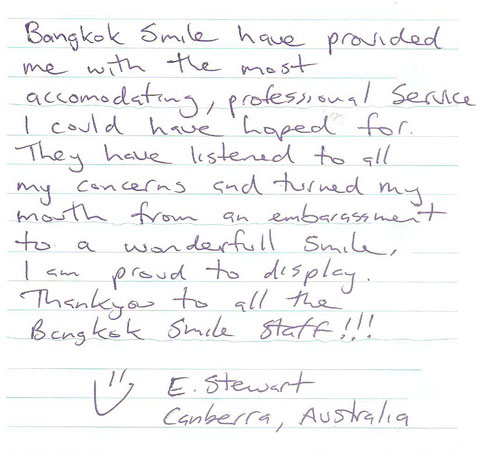 Bangkok Smile have provided
me with the most
accomodating, professional Service
I could have hoped for.
They have listened to all
my concerns and turned my
mouth from an embarassment
to a wonderfull smile,
I am proud to display.
Thankyou to all the
Bangkok Smile Staff!!!
E. Stewart
Canberra, Australia